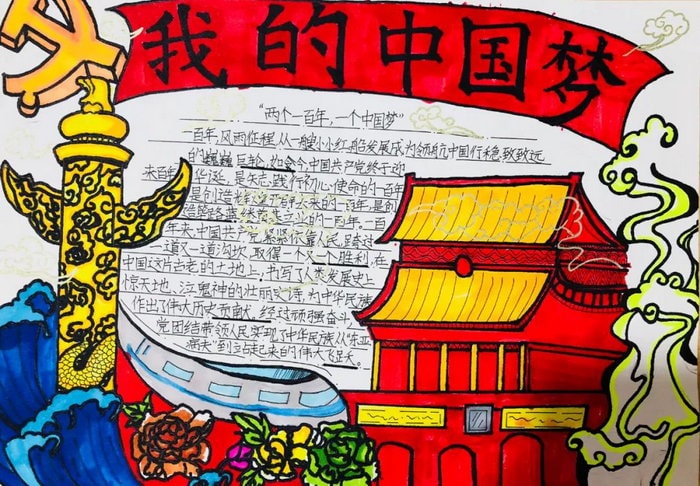 我的中国梦
“两个一百年,一个中国梦”
一百年,风雨征程,从一艘小小红船发展成为领航中国行稳致远
的巍巍巨轮,如今中国共产党终于迎
来百年华诞,是矢志践行初心使命的一百年
是创造 未来的一百年,是
的一百年。一百
年来,中国共产党紧紧依靠人民,跨过一
道又一道沟坎,取得一个又一个胜利,在
中国这片古老的土地上,书写了人类发展史上
惊天地、泣鬼神的壮丽史诗,为中华民族
作出了伟大历史贡献,经过顽强奋斗,
党团结带领人民实现了中华民族从“东亚
病夫”到站起来的伟大飞跃。